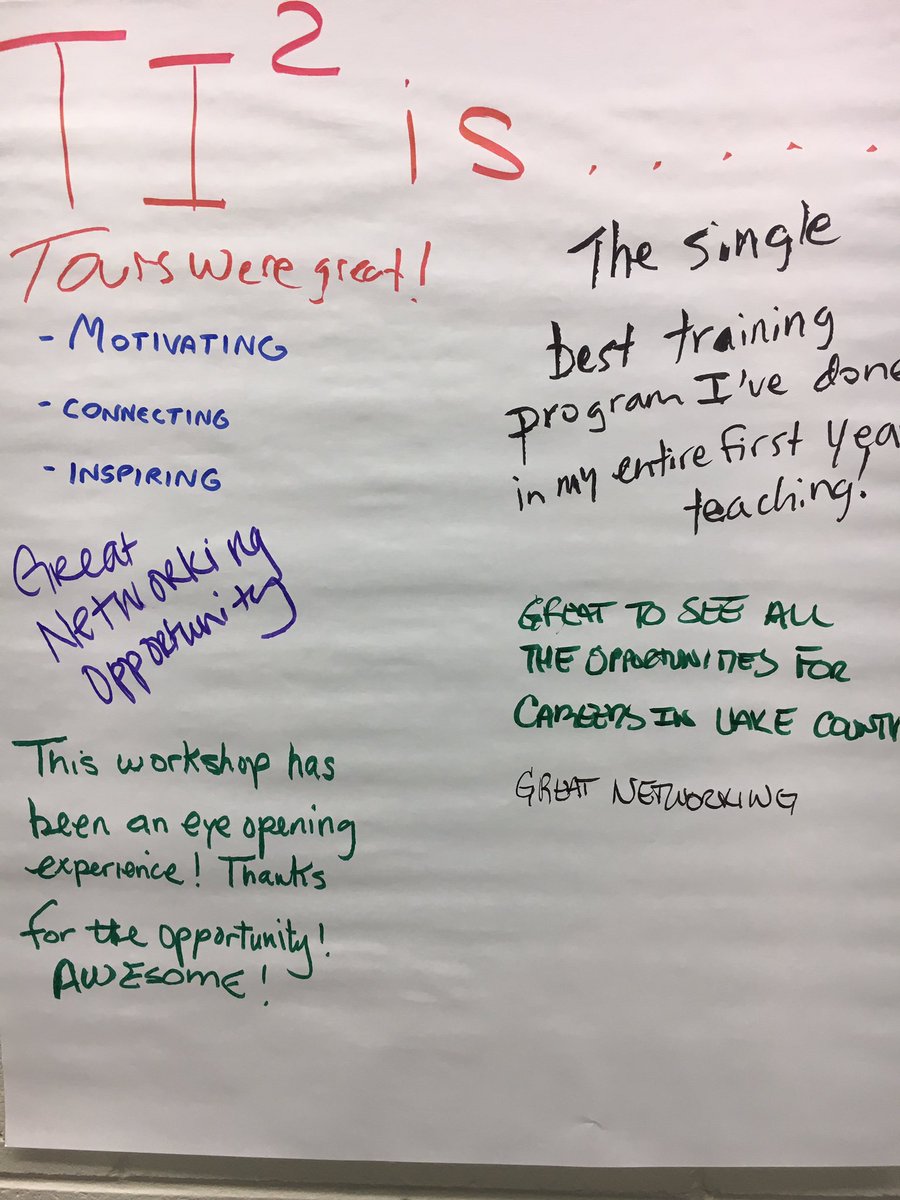 TI² is.....
Tours were great!
- MOTIVATING
- CONNECTING
- INSPIRING
Great
Networking
Opportunity
This workshop has
been an eye opening
experience! Thanks
for the opportunity!
AWESOME!
The single
best training
program I've done
in my entire first yea
teaching!
GREAT TO SEE ALL
THE OPPORTUNITIES FOR
CAREERS IN LAKE COUNTY
GREAT NETWORKING